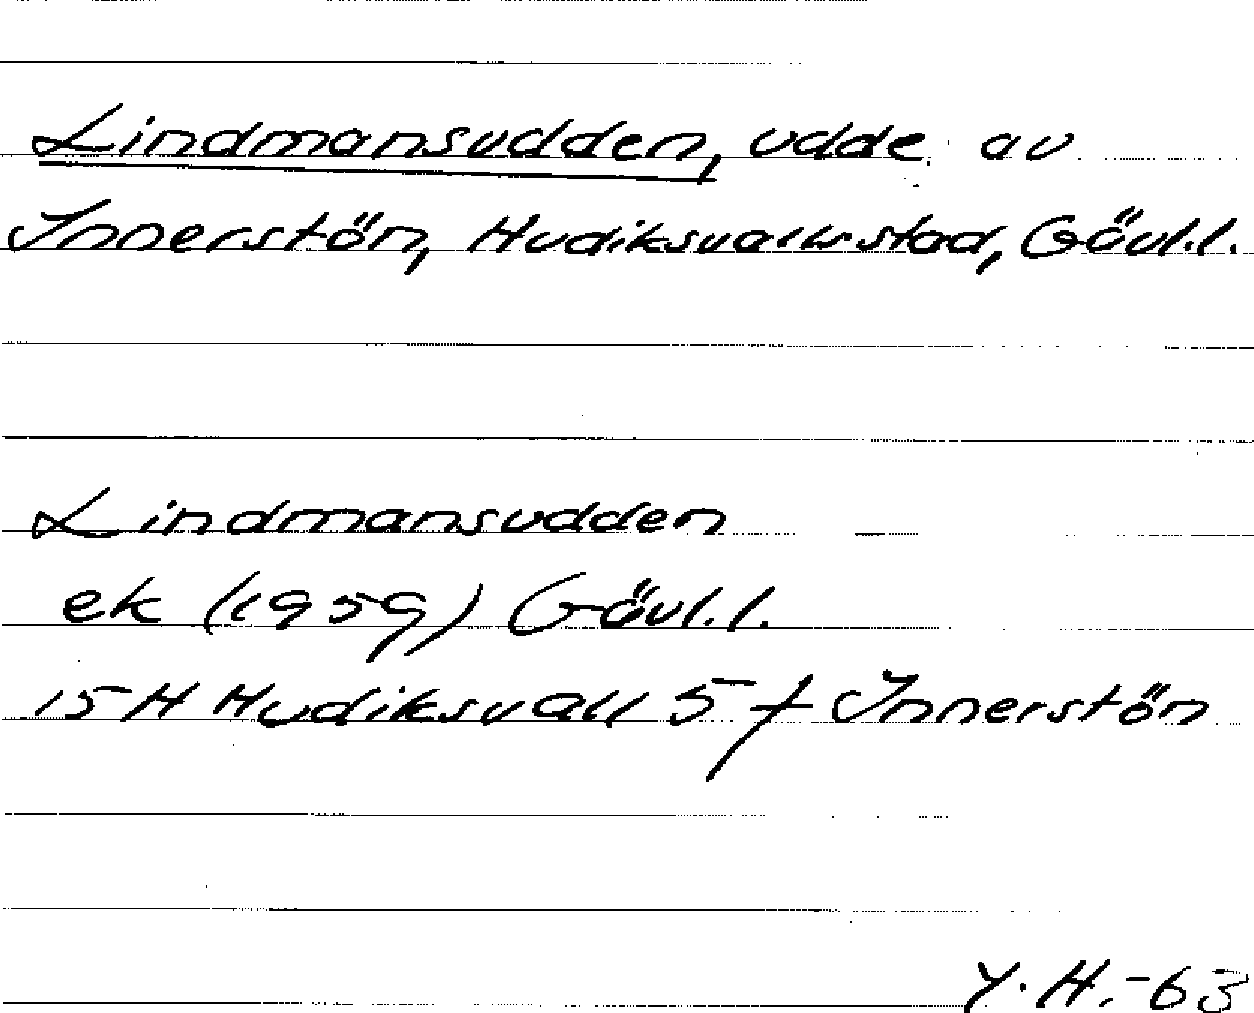 Lindmansudden, udde av
Innerstön, Hudiksvalls stad, Gävl.l.
Lindmansudden
ek (1959) Gävl.l.
15 H Hudiksvall 5 f Innerstön
Y.H.-63